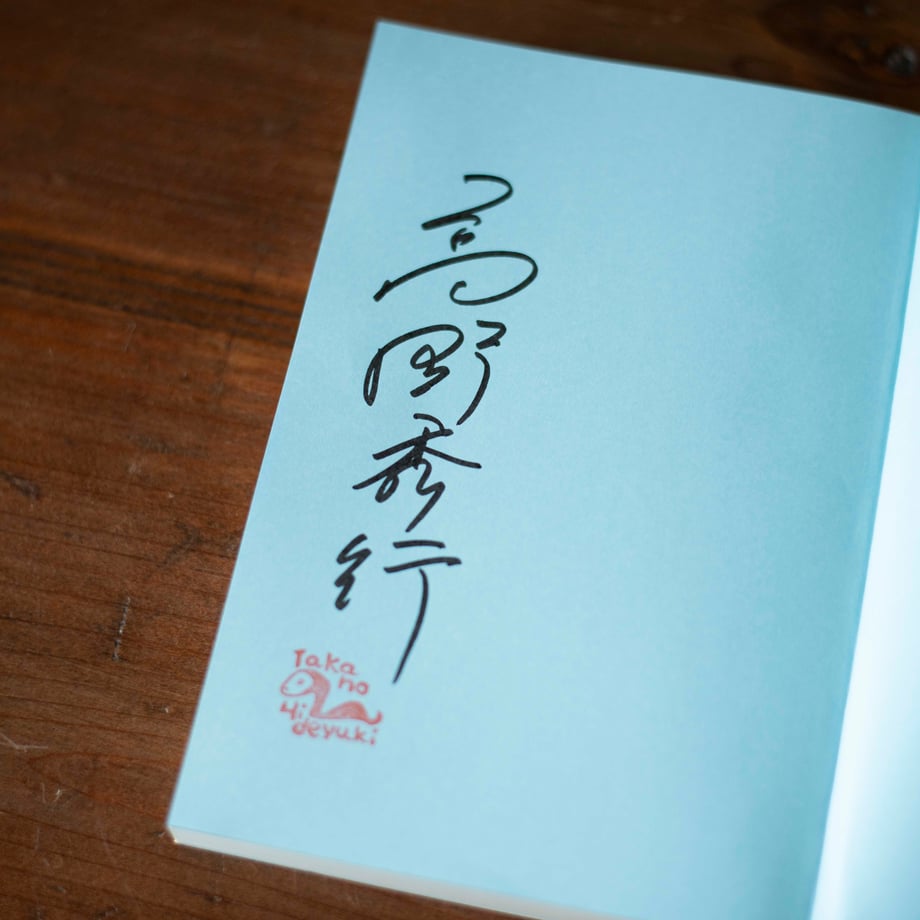 高野秀行
Taka
no
Hi
deyuki